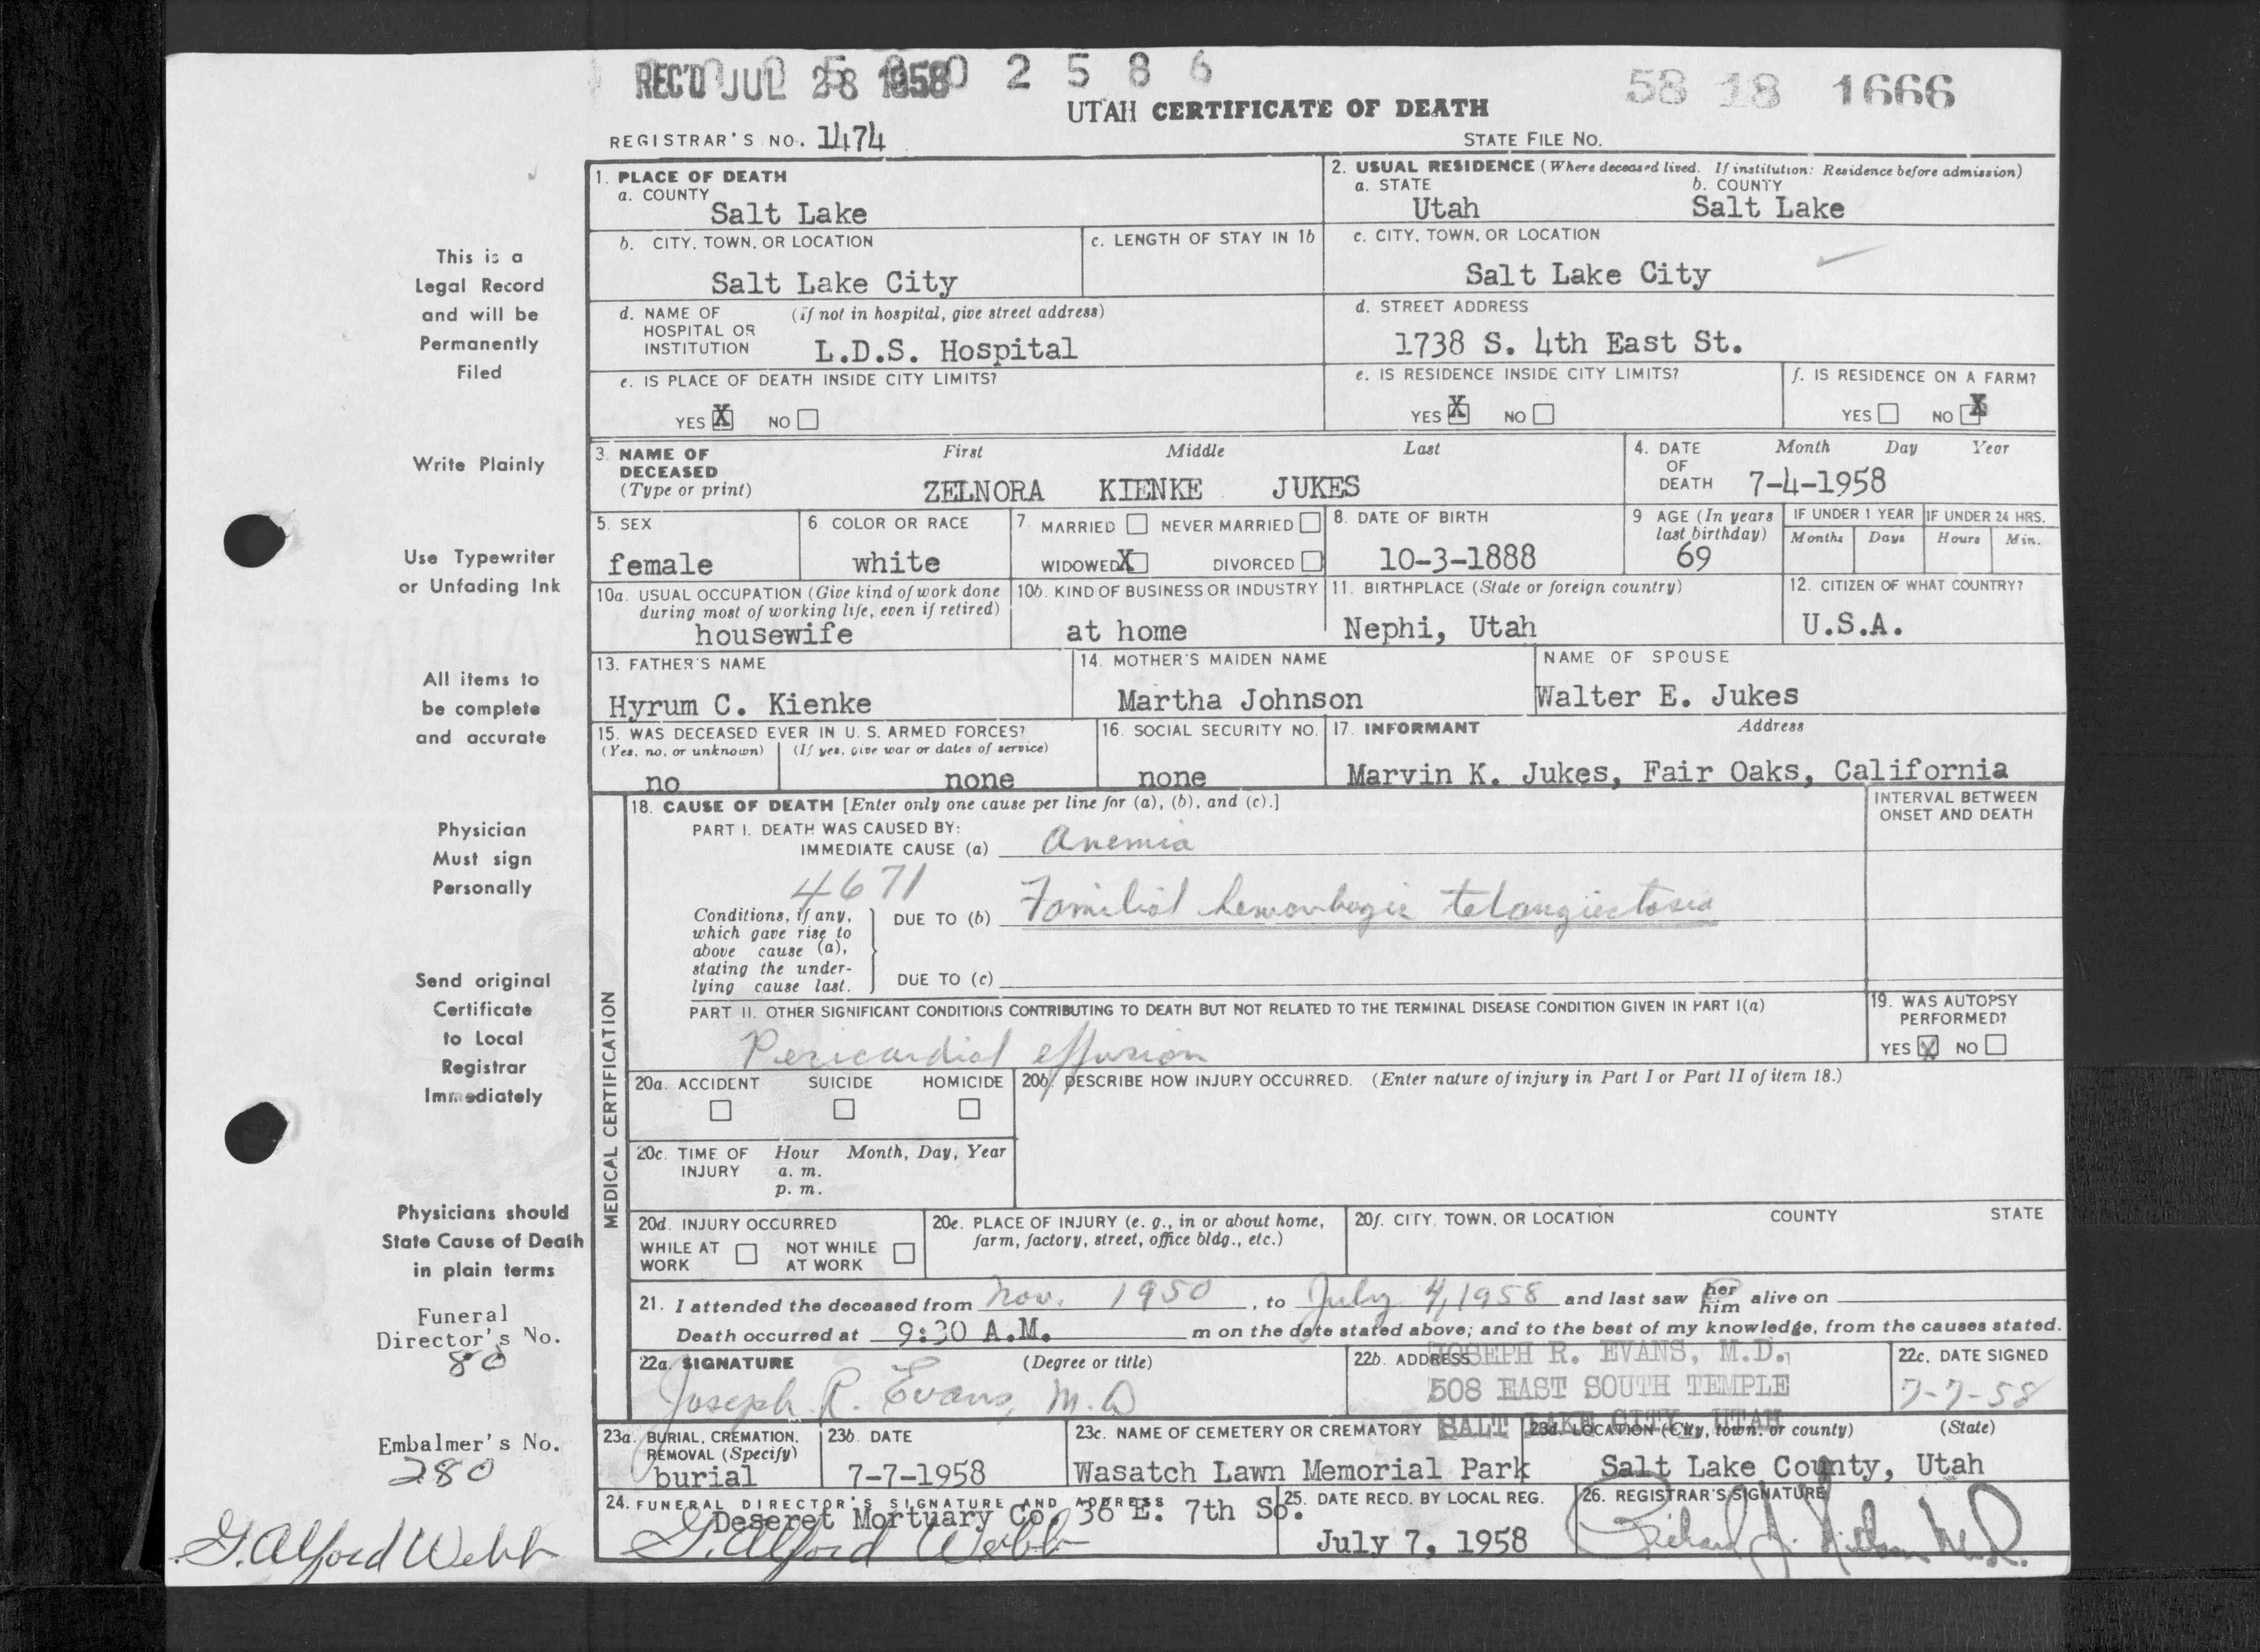 REC'D JUL 28 1958 0 2 5 8 6
58 18 1666
UTAH CERTIFICATE OF DEATH
REGISTRAR'S NO. 1474
STATE FILE NO.
1. PLACE OF DEATH
a. COUNTY
Salt Lake
2. USUAL RESIDENCE (Where deceased lived. If institution: Residence before admission)
a. STATE b. COUNTY
Utah Salt Lake
b. CITY, TOWN, OR LOCATION
Salt Lake City
c. LENGTH OF STAY IN 1b
c. CITY, TOWN, OR LOCATION
Salt Lake City
d. NAME OF HOSPITAL OR INSTITUTION (if not in hospital, give street address)
L.D.S. Hospital
d. STREET ADDRESS
1738 S. 4th East St.
e. IS PLACE OF DEATH INSIDE CITY LIMITS?
YES X NO
e. IS RESIDENCE INSIDE CITY LIMITS?
YES X NO
f. IS RESIDENCE ON A FARM?
YES NO X
3. NAME OF DECEASED (Type or print)
First Middle Last
ZELNORA KIENKE JUKES
4. DATE OF DEATH
Month Day Year
7-4-1958
5. SEX
female
6. COLOR OR RACE
white
7. MARRIED NEVER MARRIED
WIDOWED X DIVORCED
8. DATE OF BIRTH
10-3-1888
9 AGE (In years last birthday)
69
IF UNDER 1 YEAR
Months Days
IF UNDER 24 HRS.
Hours Min.
10a. USUAL OCCUPATION (Give kind of work done during most of working life, even if retired)
housewife
10b. KIND OF BUSINESS OR INDUSTRY
at home
11. BIRTHPLACE (State or foreign country)
Nephi, Utah
12. CITIZEN OF WHAT COUNTRY?
U.S.A.
13. FATHER'S NAME
Hyrum C. Kienke
14. MOTHER'S MAIDEN NAME
Martha Johnson
NAME OF SPOUSE
Walter E. Jukes
15. WAS DECEASED EVER IN U. S. ARMED FORCES?
(Yes, no, or unknown) (If yes, give war or dates of service)
no none
16. SOCIAL SECURITY NO.
none
17. INFORMANT Address
Marvin K. Jukes, Fair Oaks, California
MEDICAL CERTIFICATION
18. CAUSE OF DEATH [Enter only one cause per line for (a), (b), and (c).]
INTERVAL BETWEEN ONSET AND DEATH
PART I. DEATH WAS CAUSED BY:
IMMEDIATE CAUSE (a) Anemia
4671
Conditions, if any, which gave rise to above cause (a), stating the underlying cause last.
DUE TO (b) Familial hemorrhagic telangiectasia
DUE TO (c)
PART II. OTHER SIGNIFICANT CONDITIONS CONTRIBUTING TO DEATH BUT NOT RELATED TO THE TERMINAL DISEASE CONDITION GIVEN IN PART I(a)
Pericardial effusion
19. WAS AUTOPSY PERFORMED?
YES X NO
20a. ACCIDENT SUICIDE HOMICIDE
20b. DESCRIBE HOW INJURY OCCURRED. (Enter nature of injury in Part I or Part II of item 18.)
20c. TIME OF INJURY Hour Month, Day, Year
a. m.
p. m.
20d. INJURY OCCURRED
WHILE AT WORK NOT WHILE AT WORK
20e. PLACE OF INJURY (e. g., in or about home, farm, factory, street, office bldg., etc.)
20f. CITY, TOWN, OR LOCATION COUNTY STATE
21. I attended the deceased from Nov. 1950, to July 4, 1958 and last saw her him alive on
Death occurred at 9:30 A.M. m on the date stated above; and to the best of my knowledge, from the causes stated.
22a. SIGNATURE (Degree or title)
Joseph R. Evans, M.D
22b. ADDRESS
JOSEPH R. EVANS, M.D.
508 EAST SOUTH TEMPLE
SALT LAKE CITY, UTAH
22c. DATE SIGNED
7-7-58
23a. BURIAL, CREMATION, REMOVAL (Specify)
burial
23b. DATE
7-7-1958
23c. NAME OF CEMETERY OR CREMATORY
Wasatch Lawn Memorial Park
23d. LOCATION (City, town, or county) (State)
Salt Lake County, Utah
24. FUNERAL DIRECTOR'S SIGNATURE AND ADDRESS
Deseret Mortuary Co. 36 E. 7th So.
G. Alford Webb
25. DATE RECD. BY LOCAL REG.
July 7, 1958
26. REGISTRAR'S SIGNATURE
This is a
Legal Record
and will be
Permanently
Filed
Write Plainly
Use Typewriter
or Unfading Ink
All items to
be complete
and accurate
Physician
Must sign
Personally
Send original
Certificate
to Local
Registrar
Immediately
Physicians should
State Cause of Death
in plain terms
Funeral
Director's No.
80
Embalmer's No.
280
G. Alford Webb